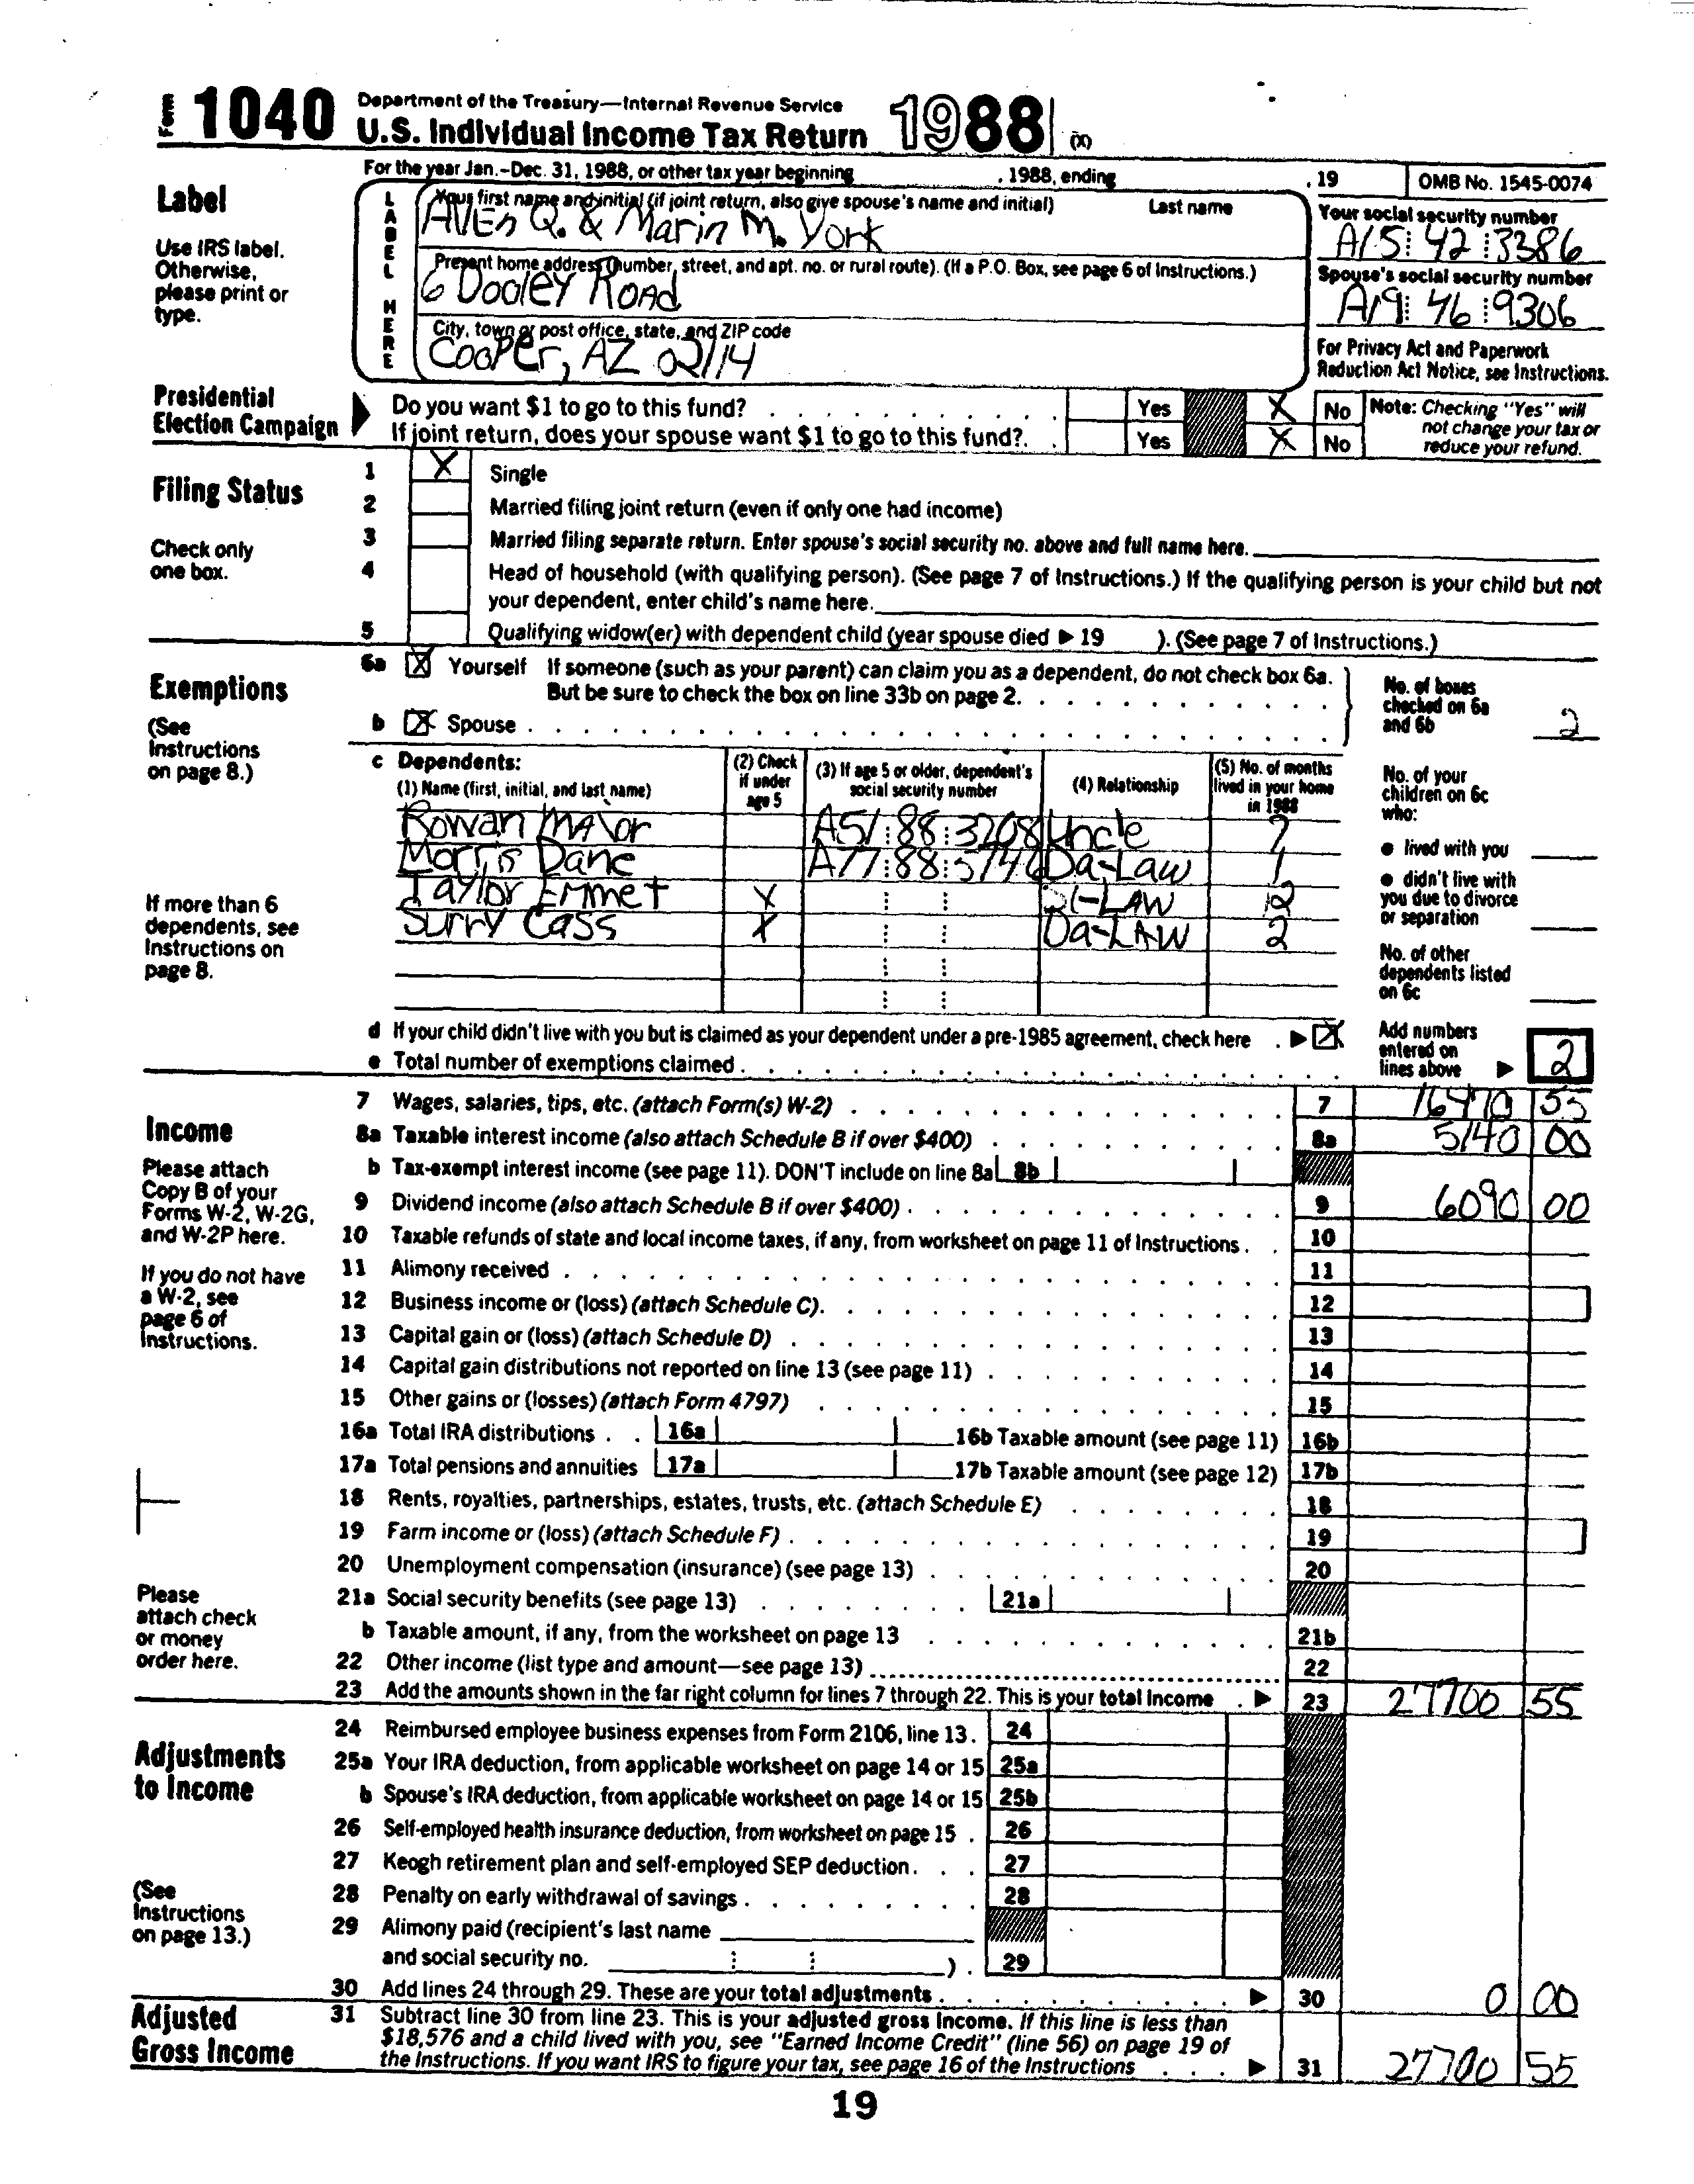 Form 1040 Department of the Treasury—Internal Revenue Service
U.S. Individual Income Tax Return 1988 (X)
For the year Jan.-Dec. 31, 1988, or other tax year beginning , 1988, ending , 19 OMB No. 1545-0074
Label
Use IRS label.
Otherwise,
please print or
type.
LABEL HERE
Your first name and initial (if joint return, also give spouse's name and initial) Last name
AVEn Q. & Marin M. York
Your social security number
A15 42 3386
Present home address (number, street, and apt. no. or rural route). (If a P.O. Box, see page 6 of Instructions.)
6 Dooley ROAD
Spouse's social security number
A19 46 9306
City, town or post office, state, and ZIP code
Cooper, AZ 02114
For Privacy Act and Paperwork
Reduction Act Notice, see Instructions.
Presidential
Election Campaign
Do you want $1 to go to this fund? Yes X No
If joint return, does your spouse want $1 to go to this fund? Yes X No
Note: Checking "Yes" will
not change your tax or
reduce your refund.
Filing Status
Check only
one box.
1 X Single
2 Married filing joint return (even if only one had income)
3 Married filing separate return. Enter spouse's social security no. above and full name here.
4 Head of household (with qualifying person). (See page 7 of Instructions.) If the qualifying person is your child but not
your dependent, enter child's name here.
5 Qualifying widow(er) with dependent child (year spouse died ▶ 19 ). (See page 7 of Instructions.)
Exemptions
(See
Instructions
on page 8.)
6a X Yourself If someone (such as your parent) can claim you as a dependent, do not check box 6a.
But be sure to check the box on line 33b on page 2.
b X Spouse
No. of boxes
checked on 6a
and 6b 2
c Dependents:
(1) Name (first, initial, and last name)
(2) Check
if under
age 5
(3) If age 5 or older, dependent's
social security number
(4) Relationship
(5) No. of months
lived in your home
in 1988
Rowan Mavor A51 88 3208 Uncle
Morris Dane A77 88 5746 Da-Law 1
Taylor Emmet X 12
Surry Cass X Da-LAW 2
If more than 6
dependents, see
Instructions on
page 8.
No. of your
children on 6c
who:
● lived with you
● didn't live with
you due to divorce
or separation
No. of other
dependents listed
on 6c
d If your child didn't live with you but is claimed as your dependent under a pre-1985 agreement, check here ▶ X
e Total number of exemptions claimed
Add numbers
entered on
lines above ▶ 2
Income
Please attach
Copy B of your
Forms W-2, W-2G,
and W-2P here.
If you do not have
a W-2, see
page 6 of
Instructions.
Please
attach check
or money
order here.
7 Wages, salaries, tips, etc. (attach Form(s) W-2) 7 16470 55
8a Taxable interest income (also attach Schedule B if over $400) 8a 5140 00
b Tax-exempt interest income (see page 11). DON'T include on line 8a 8b
9 Dividend income (also attach Schedule B if over $400) 9 6090 00
10 Taxable refunds of state and local income taxes, if any, from worksheet on page 11 of Instructions 10
11 Alimony received 11
12 Business income or (loss) (attach Schedule C) 12
13 Capital gain or (loss) (attach Schedule D) 13
14 Capital gain distributions not reported on line 13 (see page 11) 14
15 Other gains or (losses) (attach Form 4797) 15
16a Total IRA distributions 16a 16b Taxable amount (see page 11) 16b
17a Total pensions and annuities 17a 17b Taxable amount (see page 12) 17b
18 Rents, royalties, partnerships, estates, trusts, etc. (attach Schedule E) 18
19 Farm income or (loss) (attach Schedule F) 19
20 Unemployment compensation (insurance) (see page 13) 20
21a Social security benefits (see page 13) 21a
b Taxable amount, if any, from the worksheet on page 13 21b
22 Other income (list type and amount—see page 13) 22
23 Add the amounts shown in the far right column for lines 7 through 22. This is your total income ▶ 23 27700 55
Adjustments
to Income
(See
Instructions
on page 13.)
24 Reimbursed employee business expenses from Form 2106, line 13. 24
25a Your IRA deduction, from applicable worksheet on page 14 or 15 25a
b Spouse's IRA deduction, from applicable worksheet on page 14 or 15 25b
26 Self-employed health insurance deduction, from worksheet on page 15 26
27 Keogh retirement plan and self-employed SEP deduction 27
28 Penalty on early withdrawal of savings 28
29 Alimony paid (recipient's last name
and social security no. ) 29
30 Add lines 24 through 29. These are your total adjustments ▶ 30 0 00
Adjusted
Gross Income
31 Subtract line 30 from line 23. This is your adjusted gross income. If this line is less than
$18,576 and a child lived with you, see "Earned Income Credit" (line 56) on page 19 of
the Instructions. If you want IRS to figure your tax, see page 16 of the Instructions ▶ 31 27700 55
19